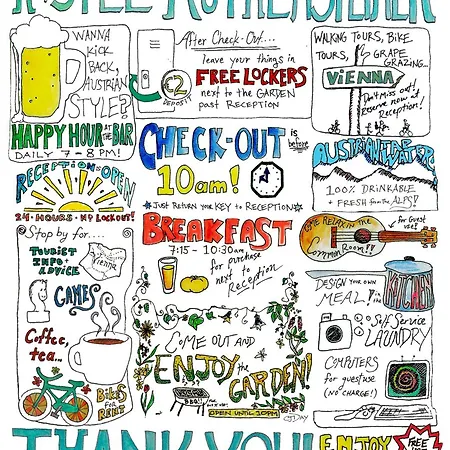 WANNA
KICK
BACK,
AUSTRIAN
STYLE?
HAPPY HOUR AT THE BAR
DAILY 7-8 PM!
After Check-Out...
leave your things in
FREE LOCKERS
next to the GARDEN
past RECEPTION
€2
DEPOSIT
WALKING TOURS, BIKE
TOURS, GRAPE
GRAZING...
VIENNA
Don't miss out!
Reserve now at
Reception!
CHECK-OUT
is before
10am!
Just Return your KEY to RECEPTION
AUSTRIAN TAP WATER
100% DRINKABLE
+ FRESH from the ALPS!
RECEPTION OPEN
24 HOURS - NO LOCKOUT!
BREAKFAST
7:15 - 10:30am
for purchase
next to
Reception
COME RELAX IN THE
Common Room!!
for Guest
use!
Stop by for....
TOURIST
INFO +
ADVICE
Vienna
GAMES
Coffee,
tea...
BIKES
FOR
RENT
COME OUT AND
ENJOY the
GARDEN!
BBQ!!
OPEN UNTIL 10PM
CJDAY
DESIGN YOUR OWN
MEAL! in
KITCHEN
Self Service
LAUNDRY
COMPUTERS
for guest use
(NO CHARGE!)
THANK YOU!
ENJOY
FREE